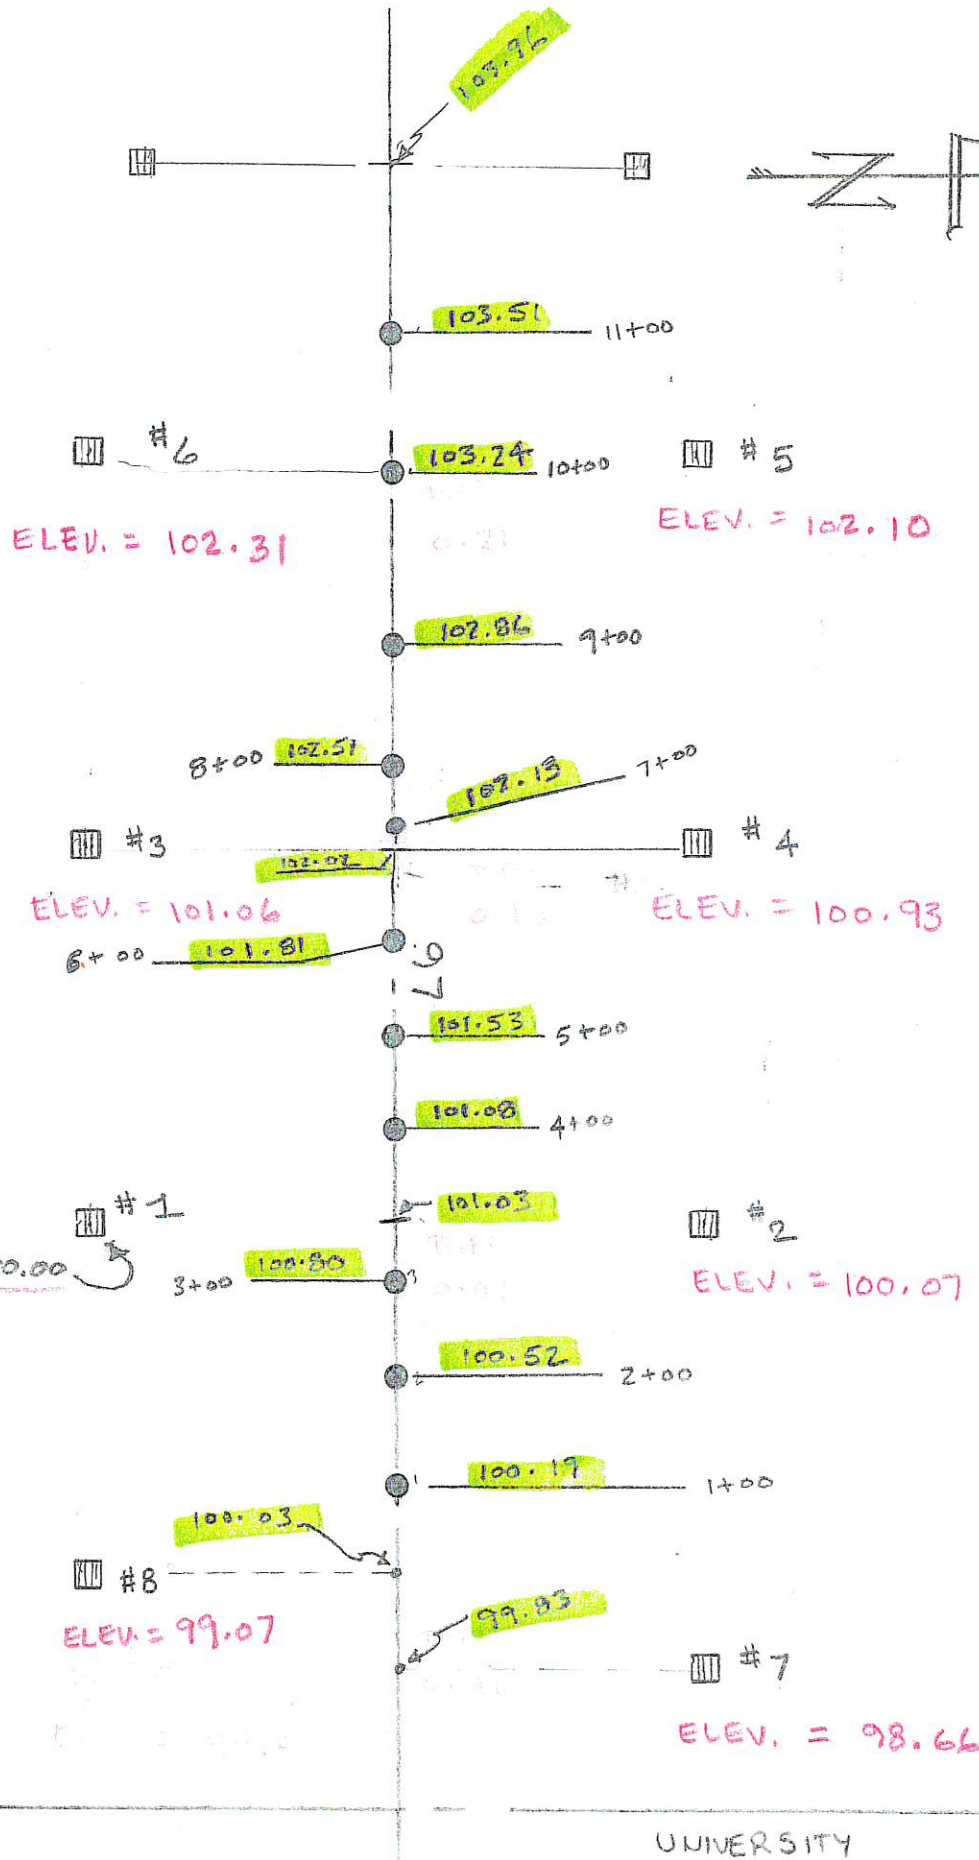 103.96
Z
103.51
11+00
#6
103.24
10+00
#5
ELEV. = 102.31
ELEV. = 102.10
102.86
9+00
8+00
102.51
102.13
7+00
#3
#4
102.02
ELEV. = 101.06
ELEV. = 100.93
6+00
101.81
.97
101.53
5+00
101.08
4+00
#1
101.03
#2
0.00
3+00
100.80
3
ELEV. = 100.07
100.52
2
2+00
100.19
1
1+00
100.03
#8
ELEV. = 99.07
99.83
#7
ELEV. = 98.66
UNIVERSITY